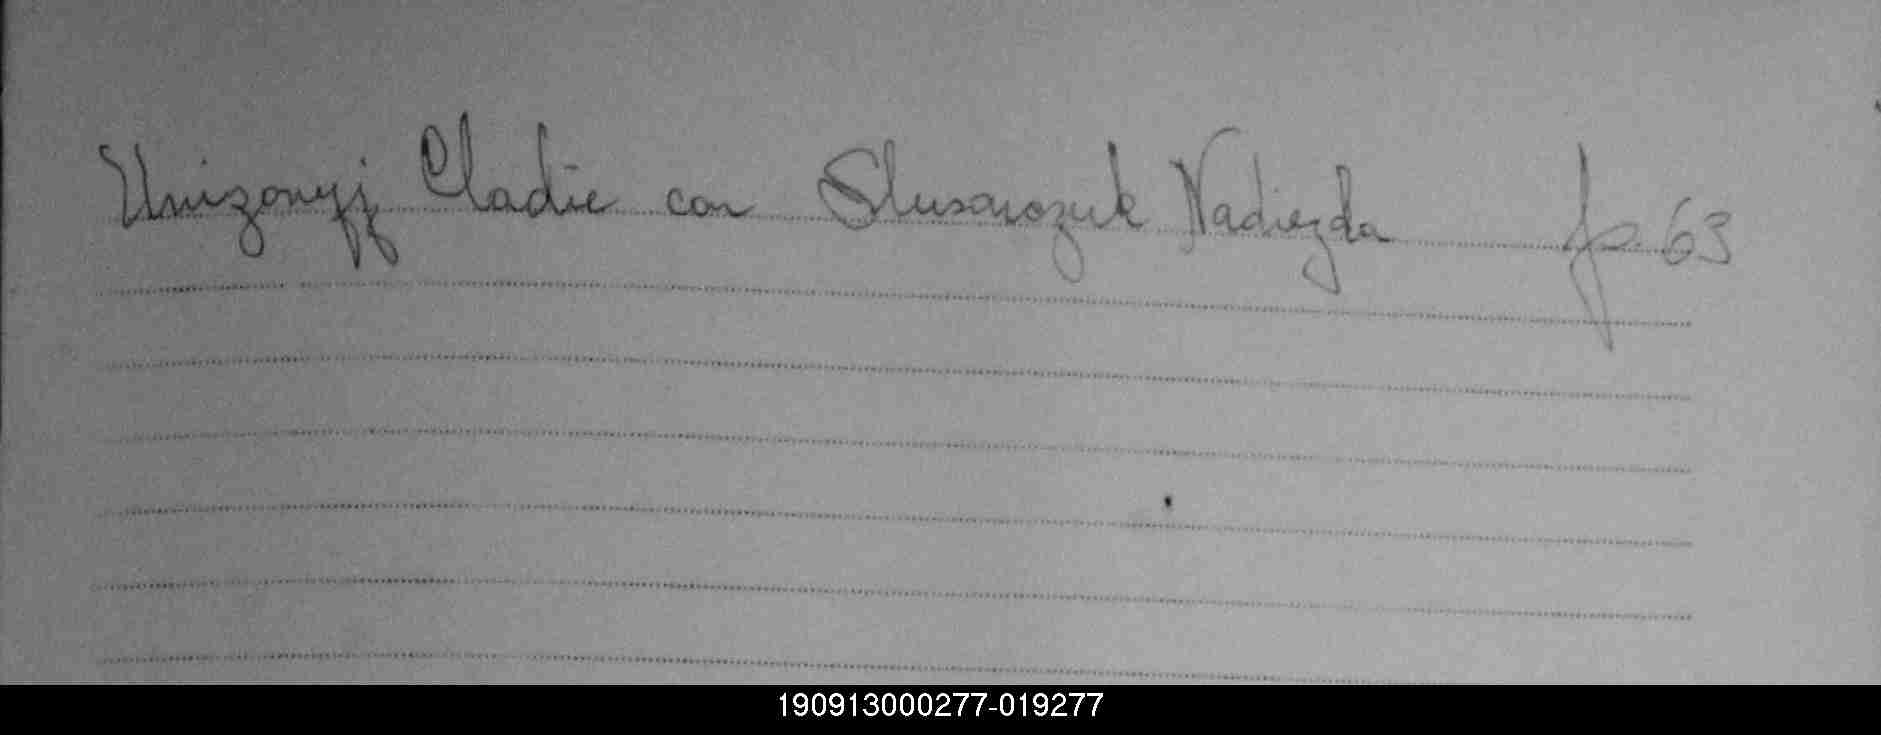 Unizonyj Cladie con Slusarczuk Nadiezda f. 63
190913000277-019277